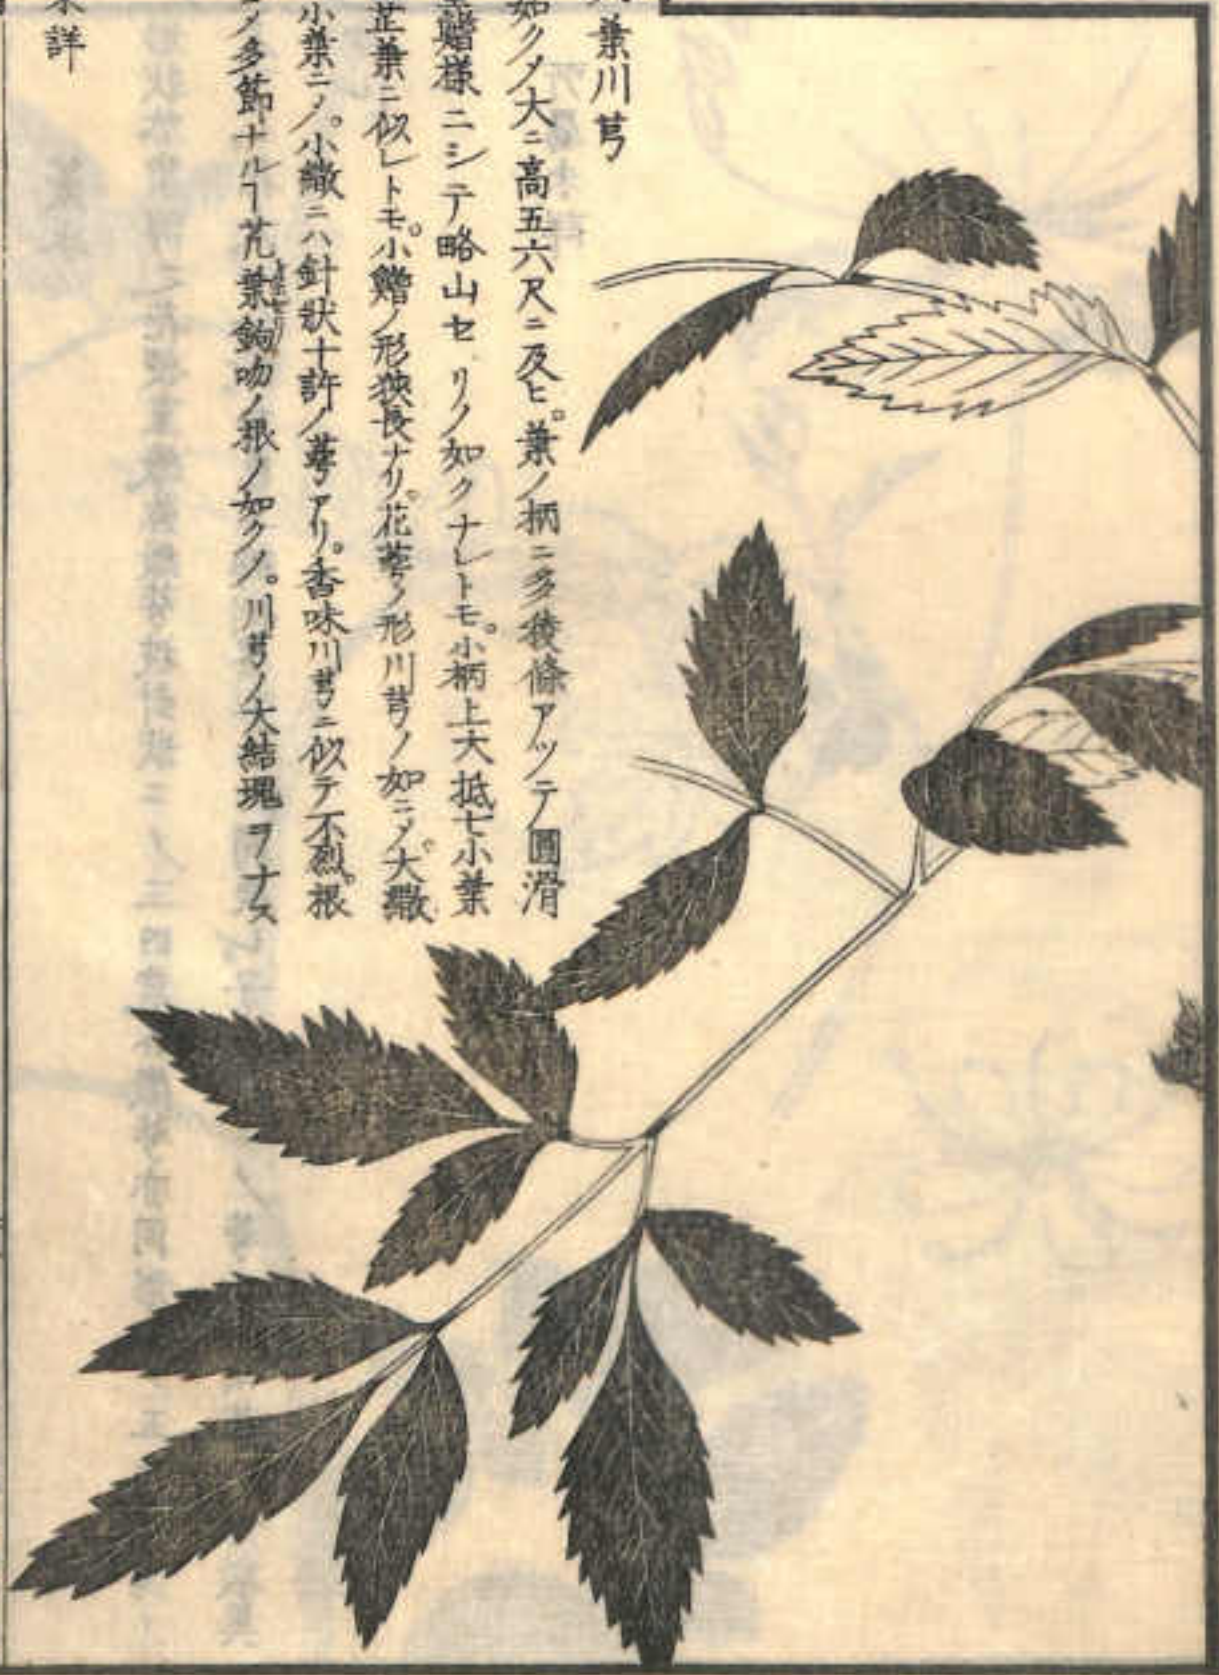 葉川芎
如クノ大ニ高五六尺ニ及ヒ。葉ノ柄ニ多稜條アツテ圓滑
鱠樣ニシテ略山セリノ如クナレトモ。小柄上大抵七小葉
芷葉ニ似レトモ。小鱠ノ形狹長ナリ。花莖ノ形川芎ノ如ニノ。大繖
小葉ニノ。小繖ニハ針狀十許ノ萼アリ。香味川芎ニ似テ不烈。根
ノ多節ナルヿ芹葉鉤吻ノ根ノ如クノ。川芎ノ大結塊ヲナス
未詳